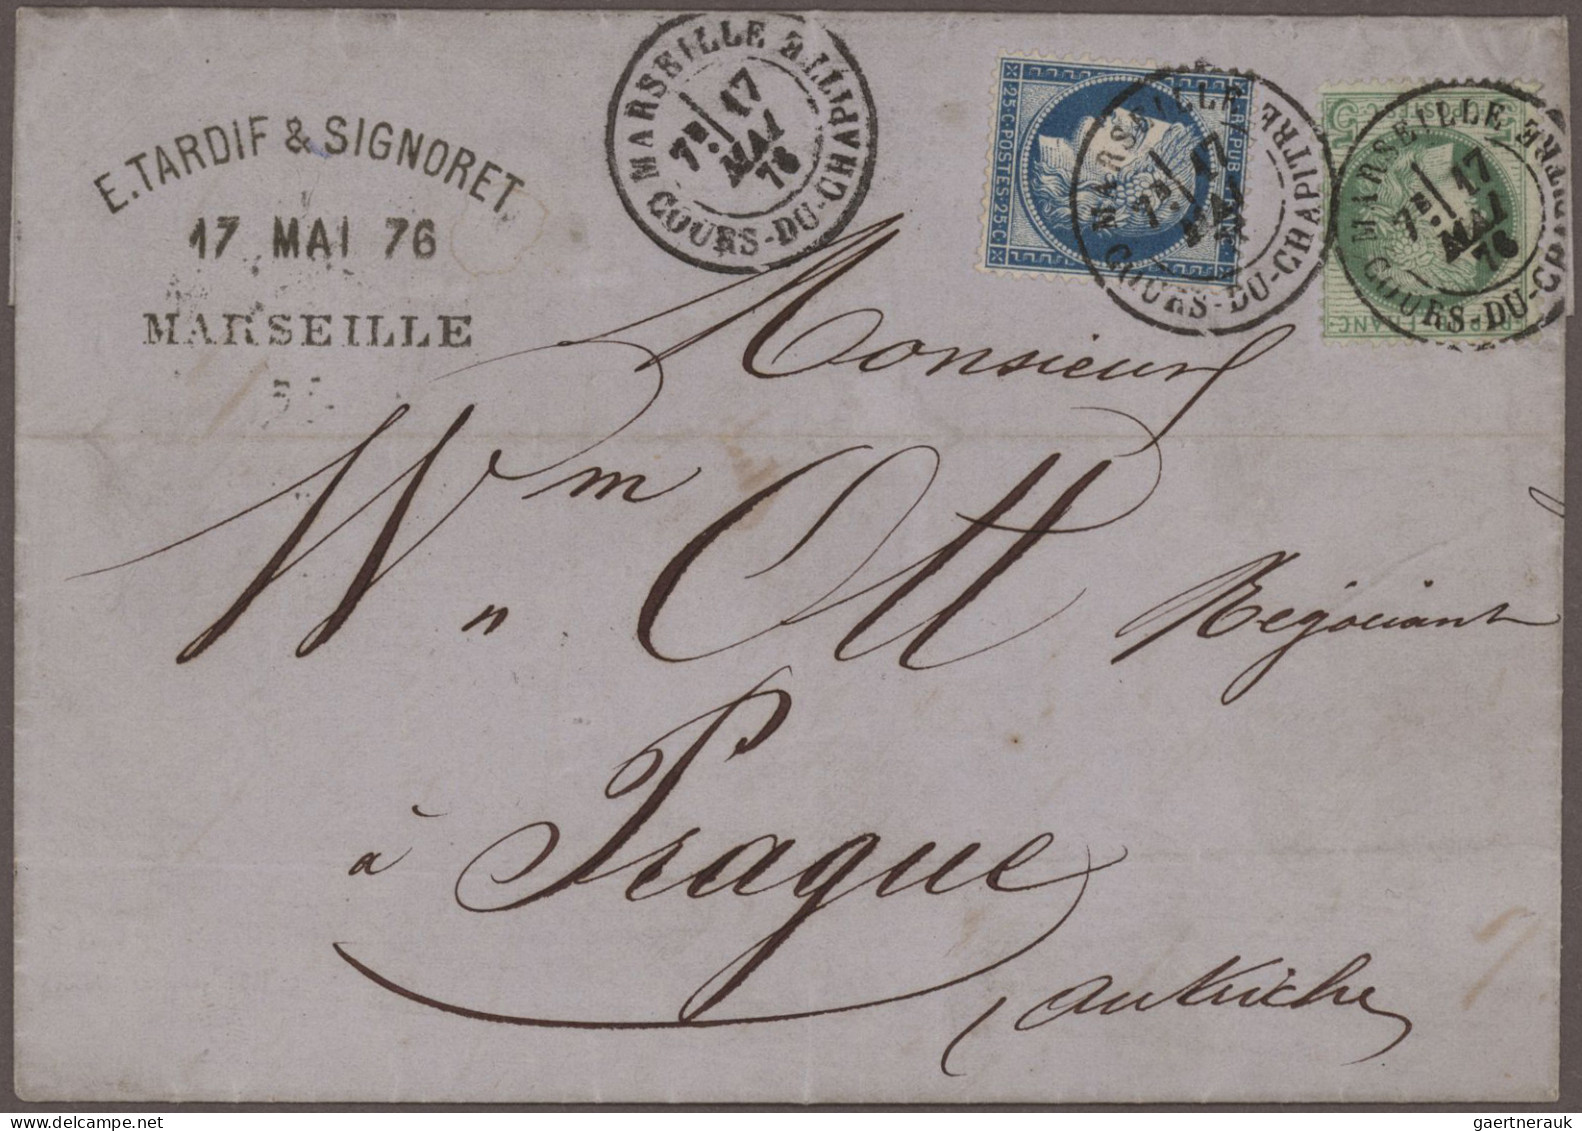 E. TARDIF & SIGNORET
17 MAI 76
MARSEILLE
MARSEILLE
7E 17
MAI
76
COURS-DU-CHAPITRE
25·C·POSTES·25·C
REPUB
MARSEILLE
7E 17
MAI
COURS-DU-CHAPITRE
FRANC
MARSEILLE
7E 17
MAI
76
COURS-DU-CHAPITRE
Monsieur
Wm Ott Négociant
à Prague
Autriche
gaertnerauk